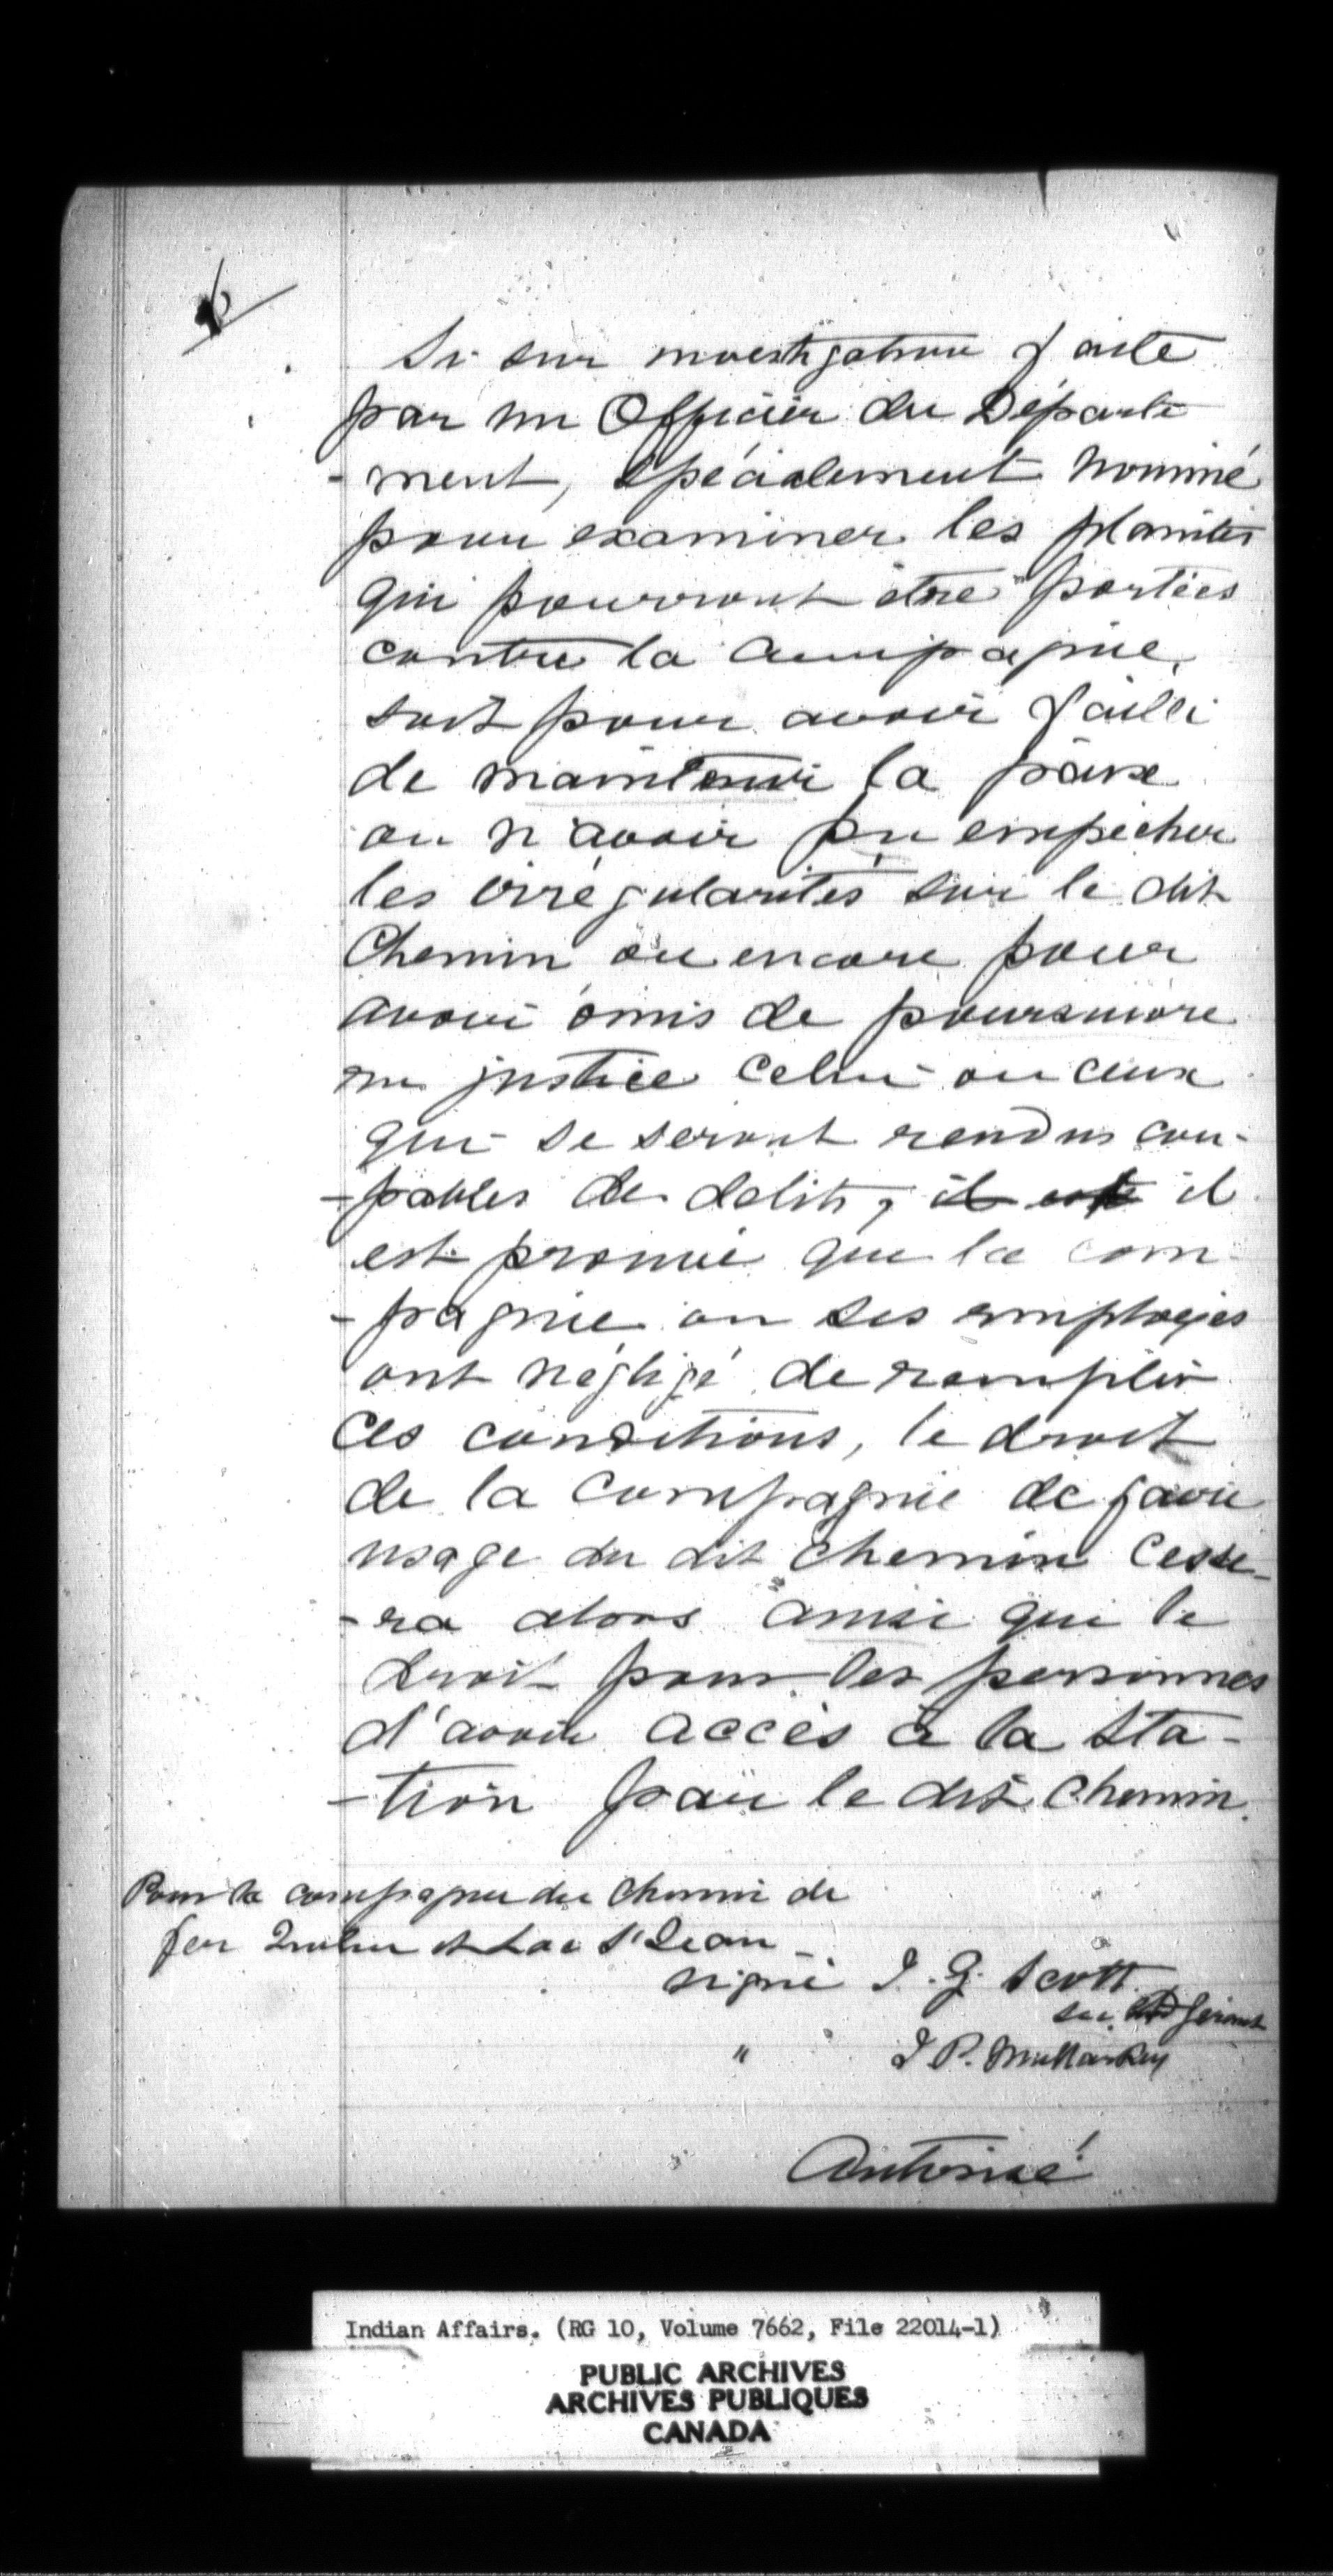 Si sur investigation faite
par un Officier du Départe
-ment, spécialement nommé
pour examiner les plaintes
qui pourront être portées
contre la Compagnie,
soit pour avoir failli
de maintenir la paix
ou n'avoir pu empêcher
les irrégularités sur le dit
Chemin ou encore pour
avoir omis de poursuivre
en justice celui ou ceux
qui se seront rendus cou-
-pables de délits, il est il
est prouvé que la com
-pagnie ou ses employés
ont négligé de remplir
ces conditions, le droit
de la Compagnie de faire
usage du dit chemin cesse-
-ra alors ainsi que le
droit pour les personnes
d'avoir accès à la sta-
-tion par le dit chemin.
Pour la compagnie du chemin de
fer Québec et Lac St Jean
signé J. G. Scott
sec. Gérant
" J P. Mullarkey
Autorisé
Indian Affairs. (RG 10, Volume 7662, File 22014-1)
PUBLIC ARCHIVES
ARCHIVES PUBLIQUES
CANADA